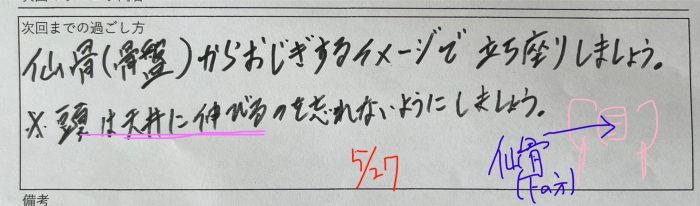 次回までの過ごし方
仙骨(骨盤)からおじぎするイメージで立ち座りしましょう。
※頭は天井に伸びるのを忘れないようにしましょう。
5/27
仙骨
(下の方)
備考